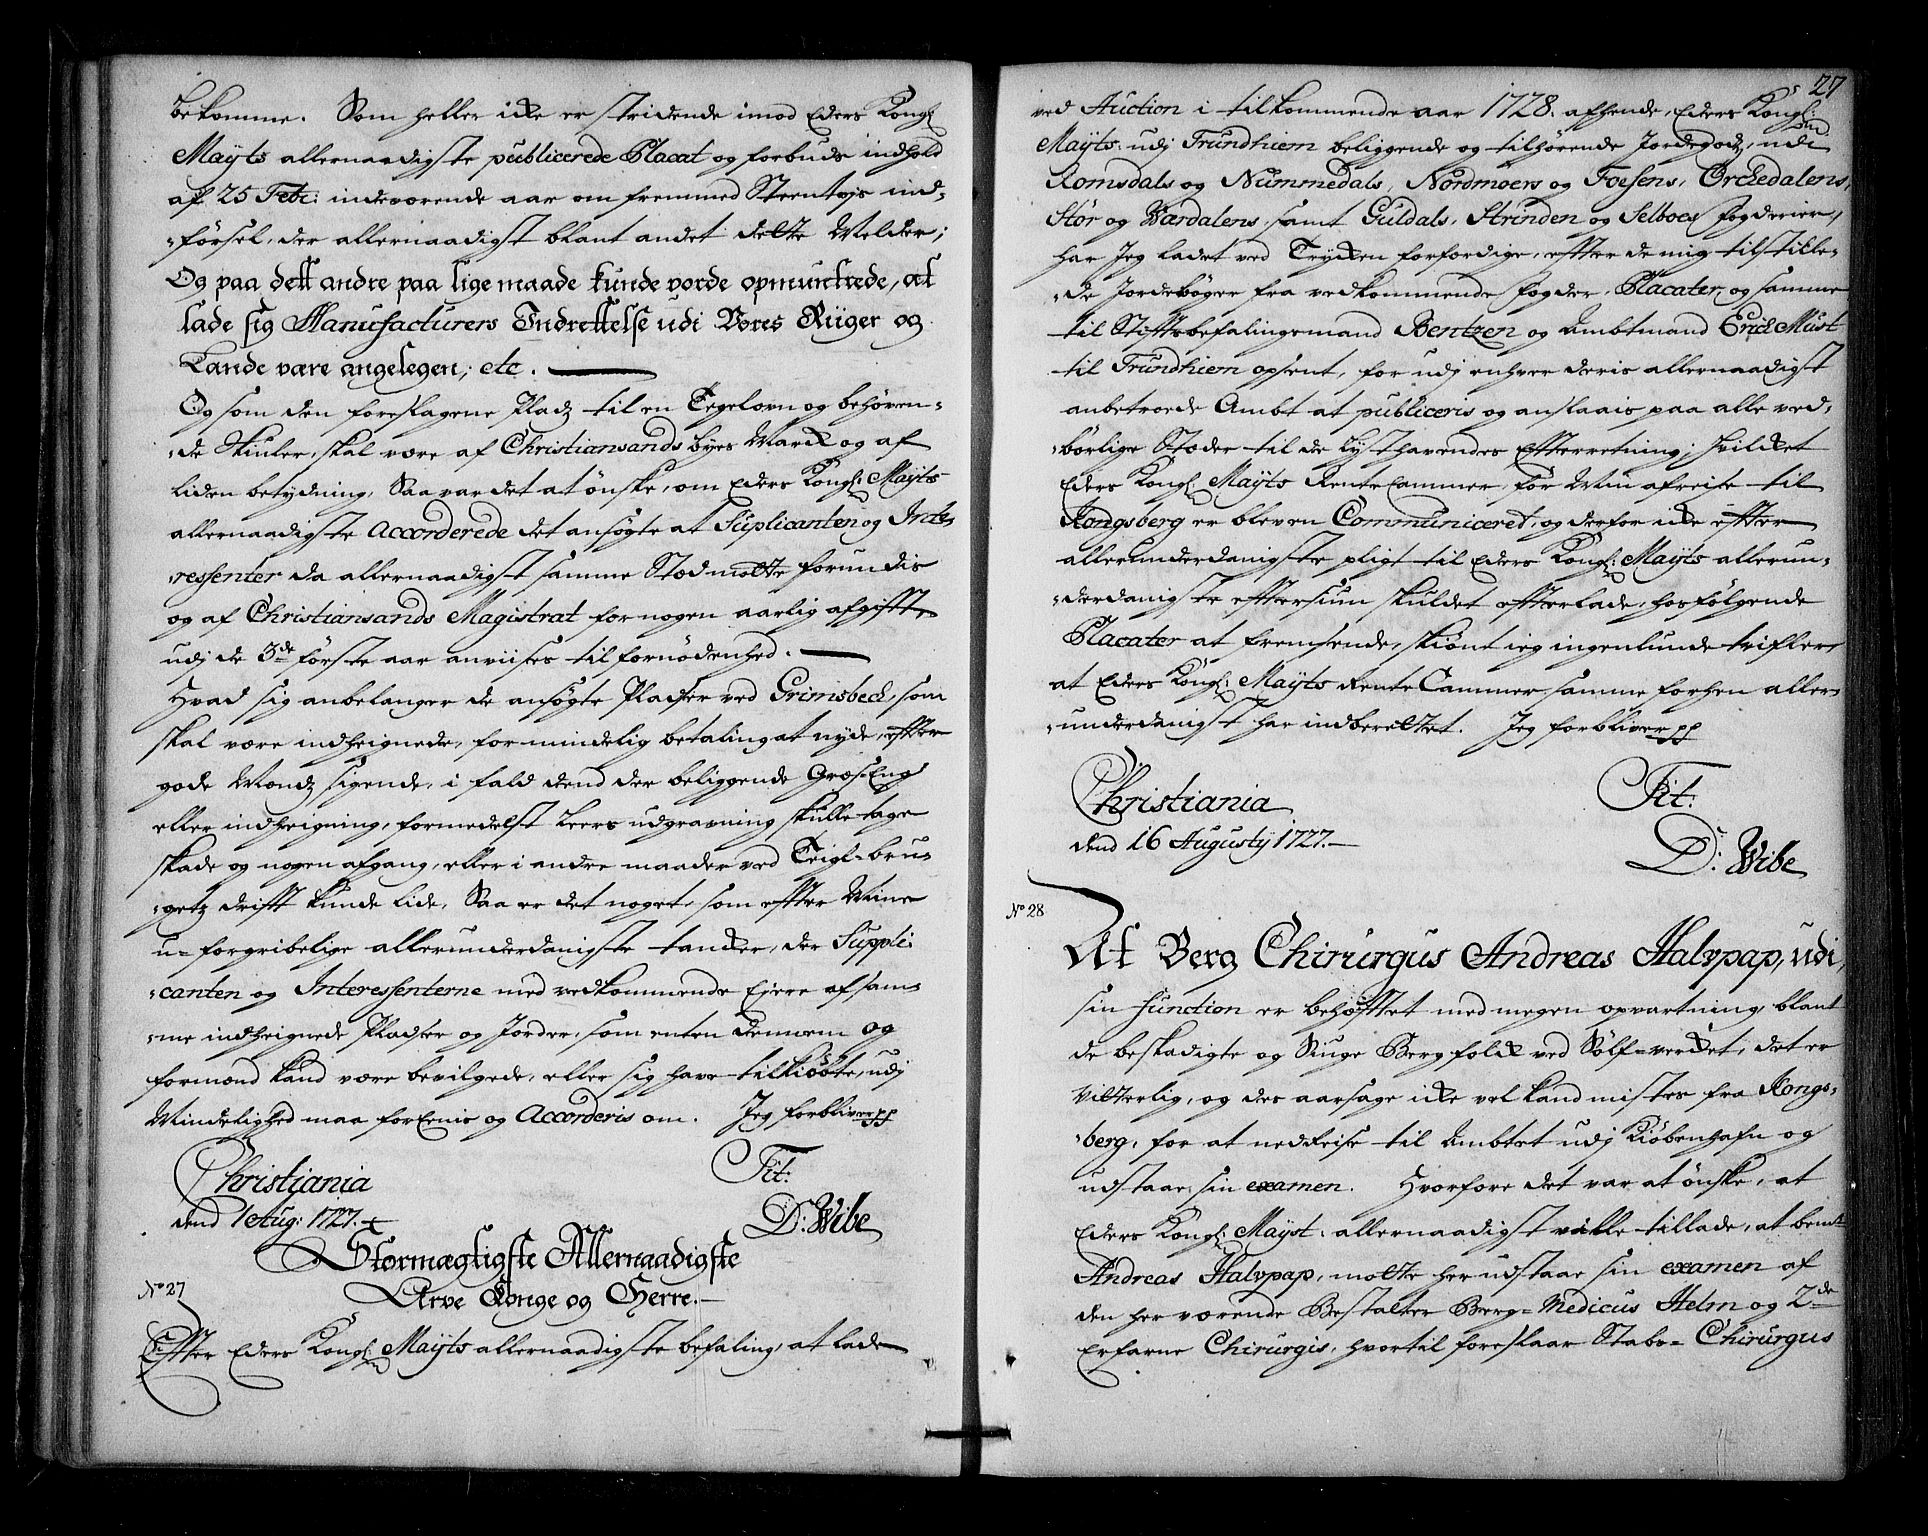 bekomme. Som heller icke er stridende imod Eders Kongl:
Mayts allernaadigste publicerede Placat og forbuds indhold
af 25 Febr: indeværende aar om fremmed Steentøis ind-
-førsel, der allernaadigst blant andet dette Melder;
Og paa dett andre paa lige maade kunde vorde opmuntrede, at
lade sig Manufacturers Indrettelse udi Vores Riiger og
Lande være angelegen; etc.
Og som den foreslagene Pladz til en Tegelovn og behøven-
-de Skiuler, skal være af Christiansands byes Marck og af
liden betydning, Saa var det at ønske, om Eders Kongl: Mayts
allernaadigste Accorderede det ansøgte at Suplicanten og Inte-
-ressenter da allernaadigst samme Stæd motte forundis
og af Christiansands Magistrat for nogen aarlig afgifft,
udj de 3de første aar anviises til fornødenhed.
Hvad sig anbelanger de ansøgte Pladser ved Grimsbech, som
skal være indheignede, for mindelig betaling at nyde, effter
gode Mænds sigende, i fald dend der beliggende Græs-Eng
eller indheigning, formedelst Leers udgravning skulle tage
skade og nogen afgang, eller i andre maader ved Teigl-bru-
-getz drifft kunde lide, Saa er det noget som effter Mine
u-forgribelige allerunderdanigste tancker, der Suppli-
-canten og Interessenterne med vedkommende Ejere af sam-
-me indheignede Pladser og Jorder, som enten dennem og
formænd kand være bevilgede, eller sig have tilkiøbte, udj
Mindelighed maa forEenis og Accorderis om. Jeg forbliver pp
Christiania
dend 1 Aug: 1727.
Tit:
D: Wibe
Stormægtigste Allernaadigste
Arve Konge og Herre.
No 27
Effter Eders Kongl: Mayts allernaadigste befaling, at lade
27
ved Auction i tilkommende aar 1728. afhende, Eders Kongl:
Mayts udj Trundhiem beliggende og tilhørende Jordegodz, udi
Romsdals og Nummedals, Nordmoers og Foesens, Orchedalens,
Stør og Værdalens, samt Guldals, Strinden og Selboes fogderier,
har Jeg ladet ved Trycken forfærdige, effter de mig tilstille-
-de Jordebøger fra vedkommende fogder, Placater, og samme
til Stifftsbefalingsmand Bentzen og Ambtmand Erich Must
til Trundhiem opsent, for udj enhver deris allernaadigst
anbetroede Ambt at publiceris og anslaais paa alle ved-
-børlige Stæder til de Lysthavendes Effterretning; hvilcket
Eders Kongl: Mayts Rente Cammer, før Min afreise til
Kongsberg er bleven Communiceret, og derfor icke effter
allerunderdanigste pligt til Eders Kongl: Mayts allerun-
-derdanigste effterslun skuldet effterlade, hosfølgende
Placater at fremsende, skiønt ieg ingenlunde tvifler,
at Eders Kongl: Mayts Rente Cammer samme forhen aller-
-underdanigst har indberettet. Jeg forbliver pp
Christiania
dend 16 Augusty 1727.
Tit:
D: Wibe
No 28
At Berg Chirurgus Andreas Halvpap, udi
sin function er behæfftet med megen opvartning blant
de beskadigte og Siuge Berg folck ved Sølf-vercket, det er
vitterlig, og des aarsage icke vel kand mistes fra Kongs-
-berg, for at nedReise til Ambtet udj Kiøbenhafn og
udstaae sin examen. Hvorfore det var at ønske, at
Eders Kongl: Mayst: allernaadigst vilde tillade, at bemte
Andreas Halvpap, motte her udstaae sin examen af
den her værende Bestalter Berg-Medicus Helm og 2de
Erfarne Chirurgis, hvortil foreslaar Stabs-Chirurgus